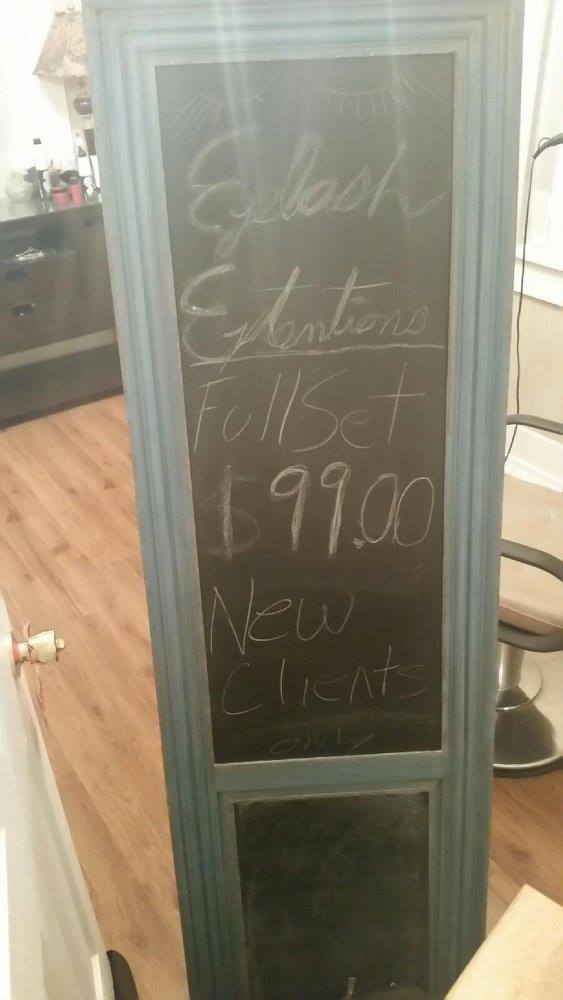 Eyelash
Extentions
Full Set
$99.00
New
Clients
only